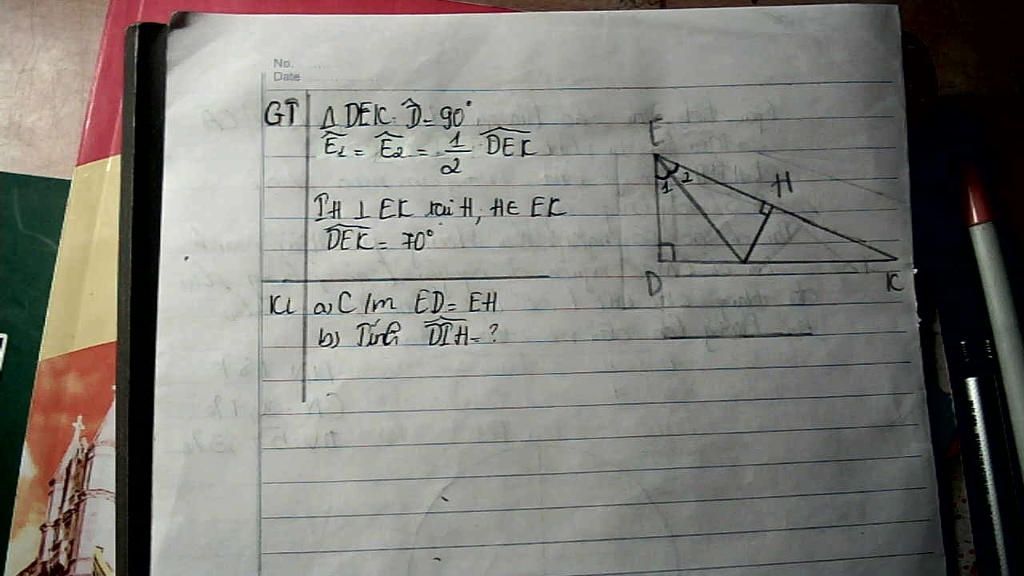 No.
Date
GT Δ DEK. D̂ = 90°
Ê₁ = Ê₂ = 1/2 DEK
IH ⊥ EK tại H, H∈ EK
DEK = 70°
KL a) C/m ED = EH
b) Tính DIH = ?
E
1 2
H
D
K